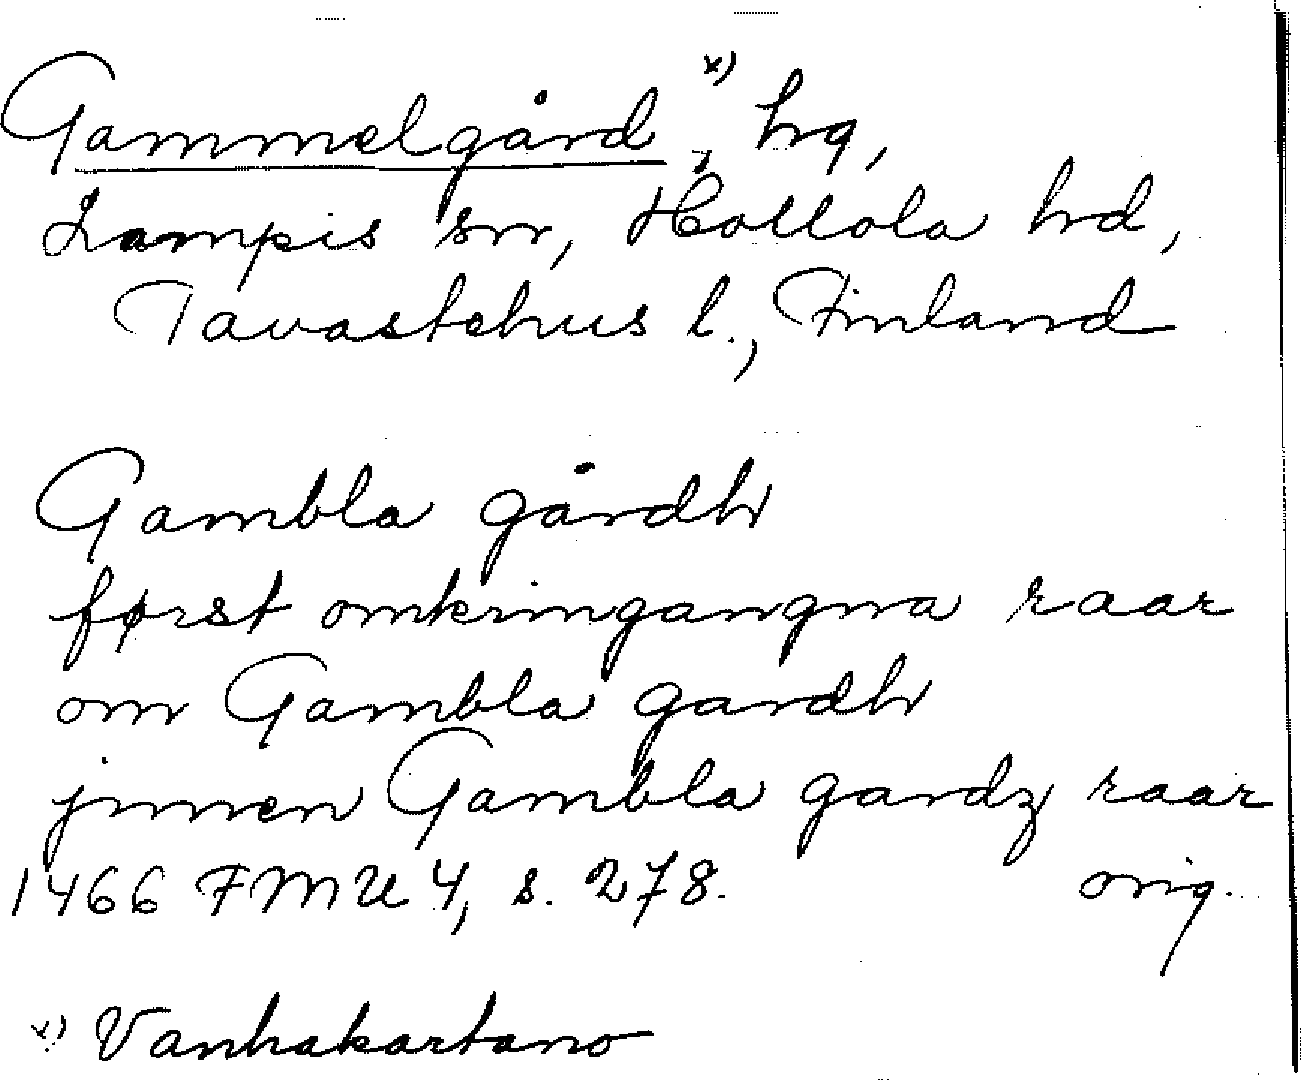 Gammelgård x), hg,
Lampis sn, Hollola hd,
Tavastehus l., Finland
Gambla gårdh
først omkringangna raar
om Gambla gardh
jnnen Gambla gardz raar
1466 FMU 4, s. 278. orig.
x) Vanhakartano